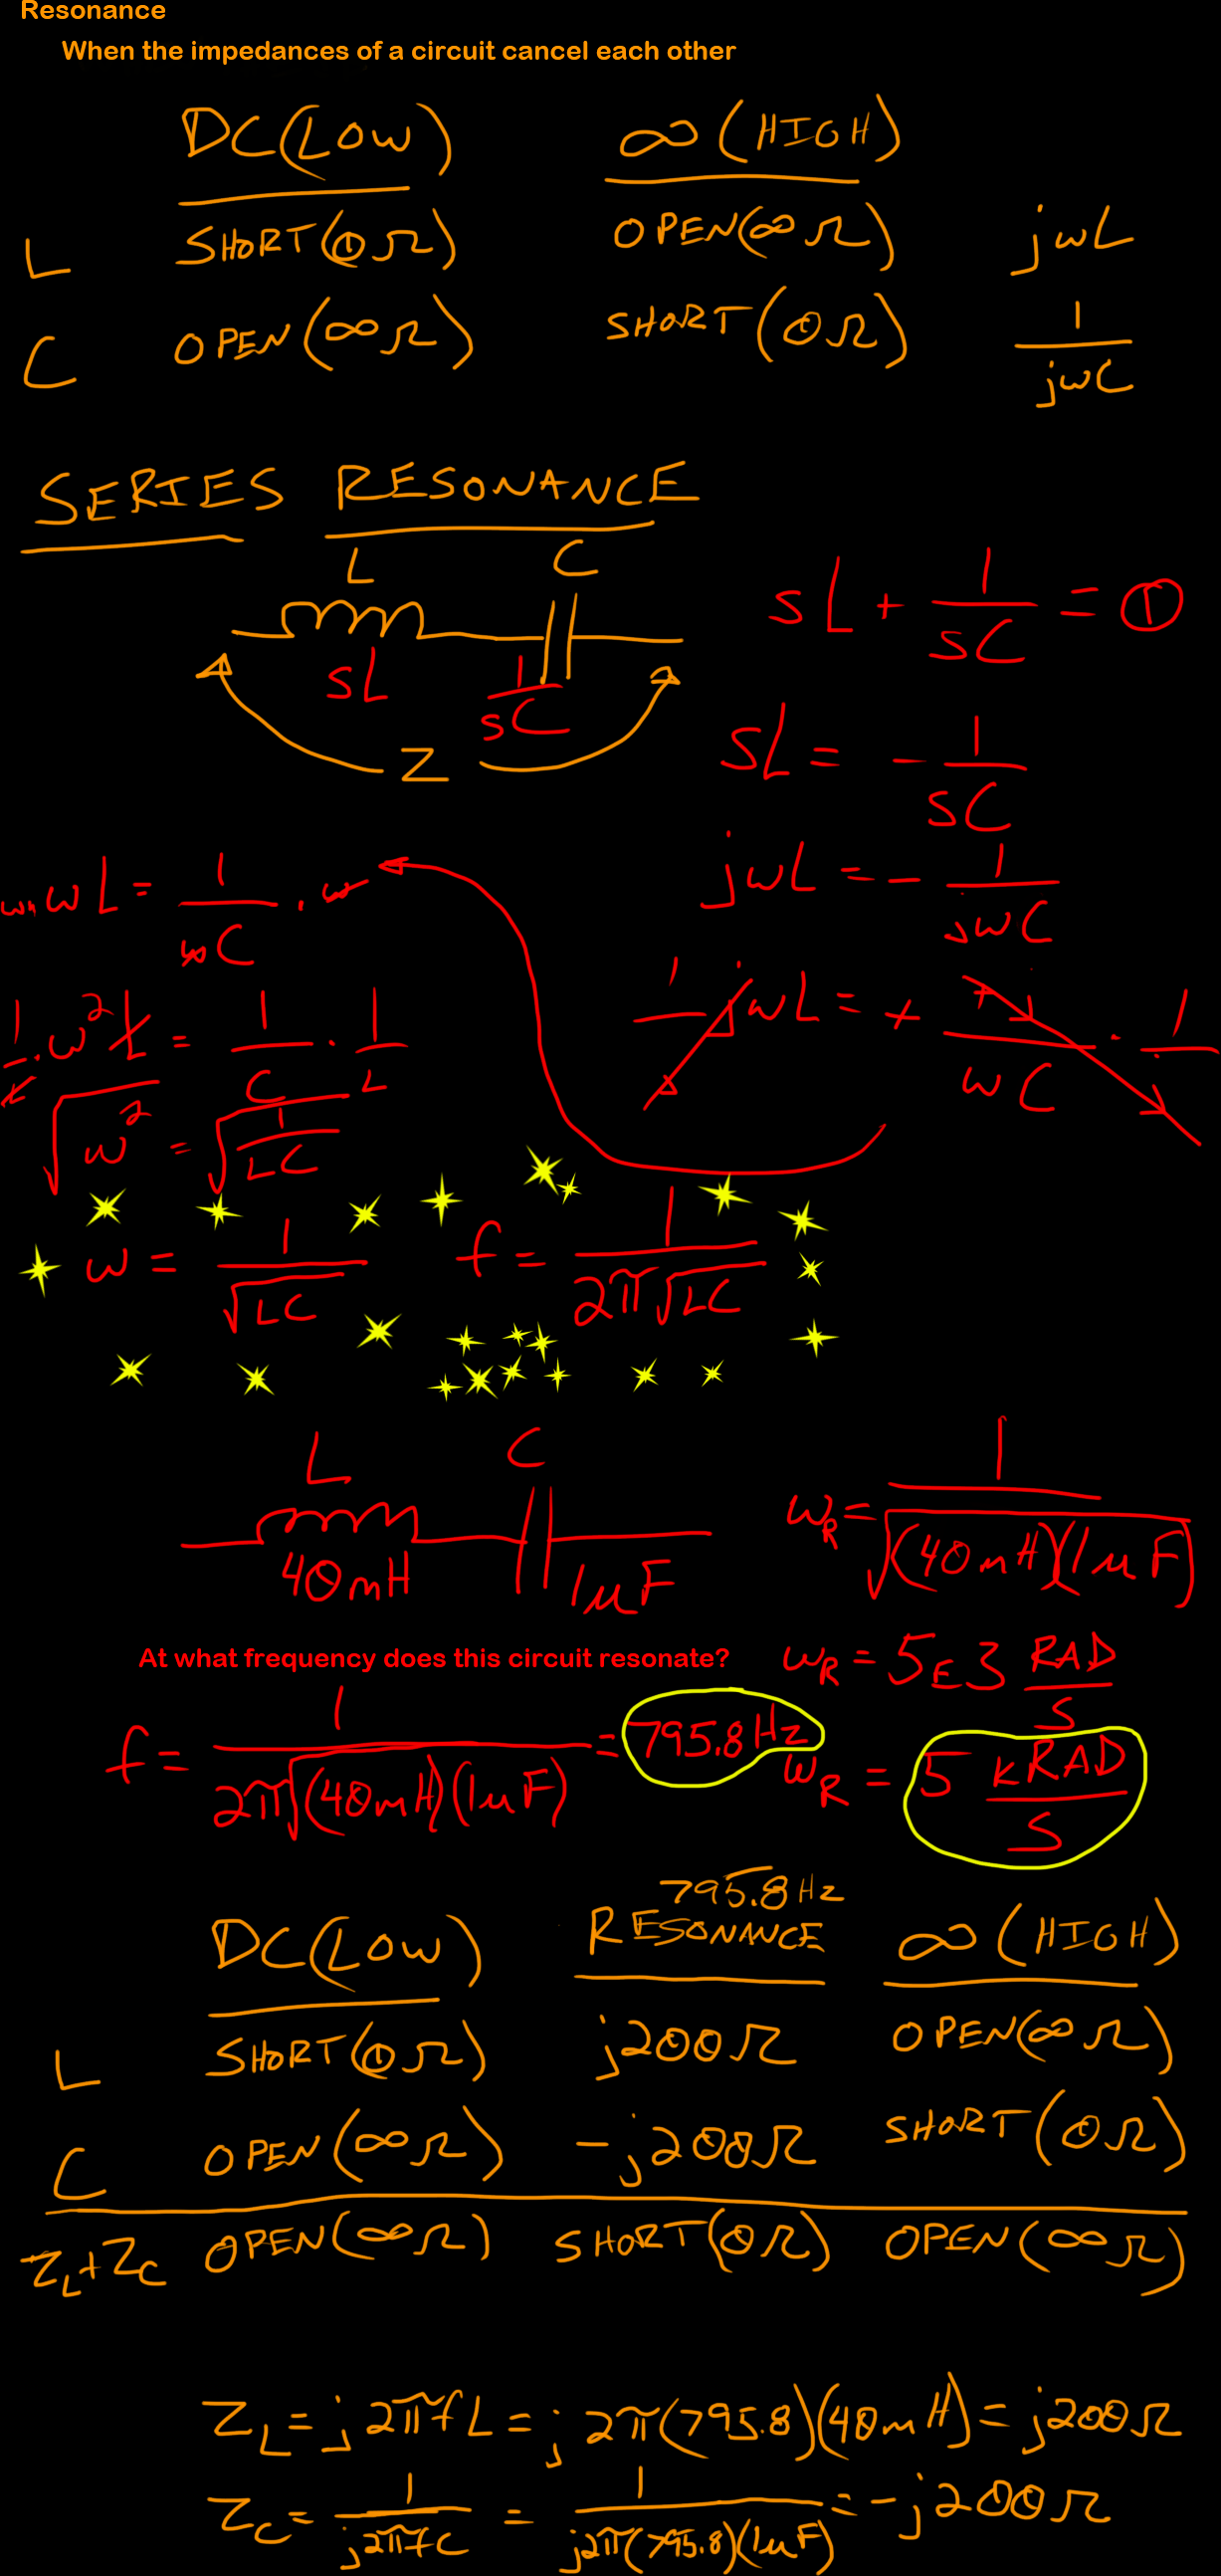 Resonance
When the impedances of a circuit cancel each other
DC(LOW) ∞(HIGH)
L SHORT(0Ω) OPEN(∞Ω) jωL
C OPEN(∞Ω) SHORT(0Ω) 1/jωC
SERIES RESONANCE
L C
sL + 1/sC = 0
sL 1/sC
Z
sL = - 1/sC
jωL = - 1/jωC
ωL = 1/ωC · ω
1/j jωL = + +j/ωC · 1/j
1/L · ω²L = 1/C · 1/L
√ω² = √1/LC
ω = 1/√LC f = 1/2π√LC
L C
40mH 1μF
ωR = 1/√(40mH)(1μF)
At what frequency does this circuit resonate?
ωR = 5E3 RAD/S
f = 1/2π√(40mH)(1μF) = 795.8Hz
ωR = 5 kRAD/S
795.8Hz
DC(LOW) RESONANCE ∞(HIGH)
L SHORT(0Ω) j200Ω OPEN(∞Ω)
C OPEN(∞Ω) -j200Ω SHORT(0Ω)
ZL+ZC OPEN(∞Ω) SHORT(0Ω) OPEN(∞Ω)
ZL = j2πfL = j2π(795.8)(40mH) = j200Ω
ZC = 1/j2πfC = 1/j2π(795.8)(1μF) = -j200Ω